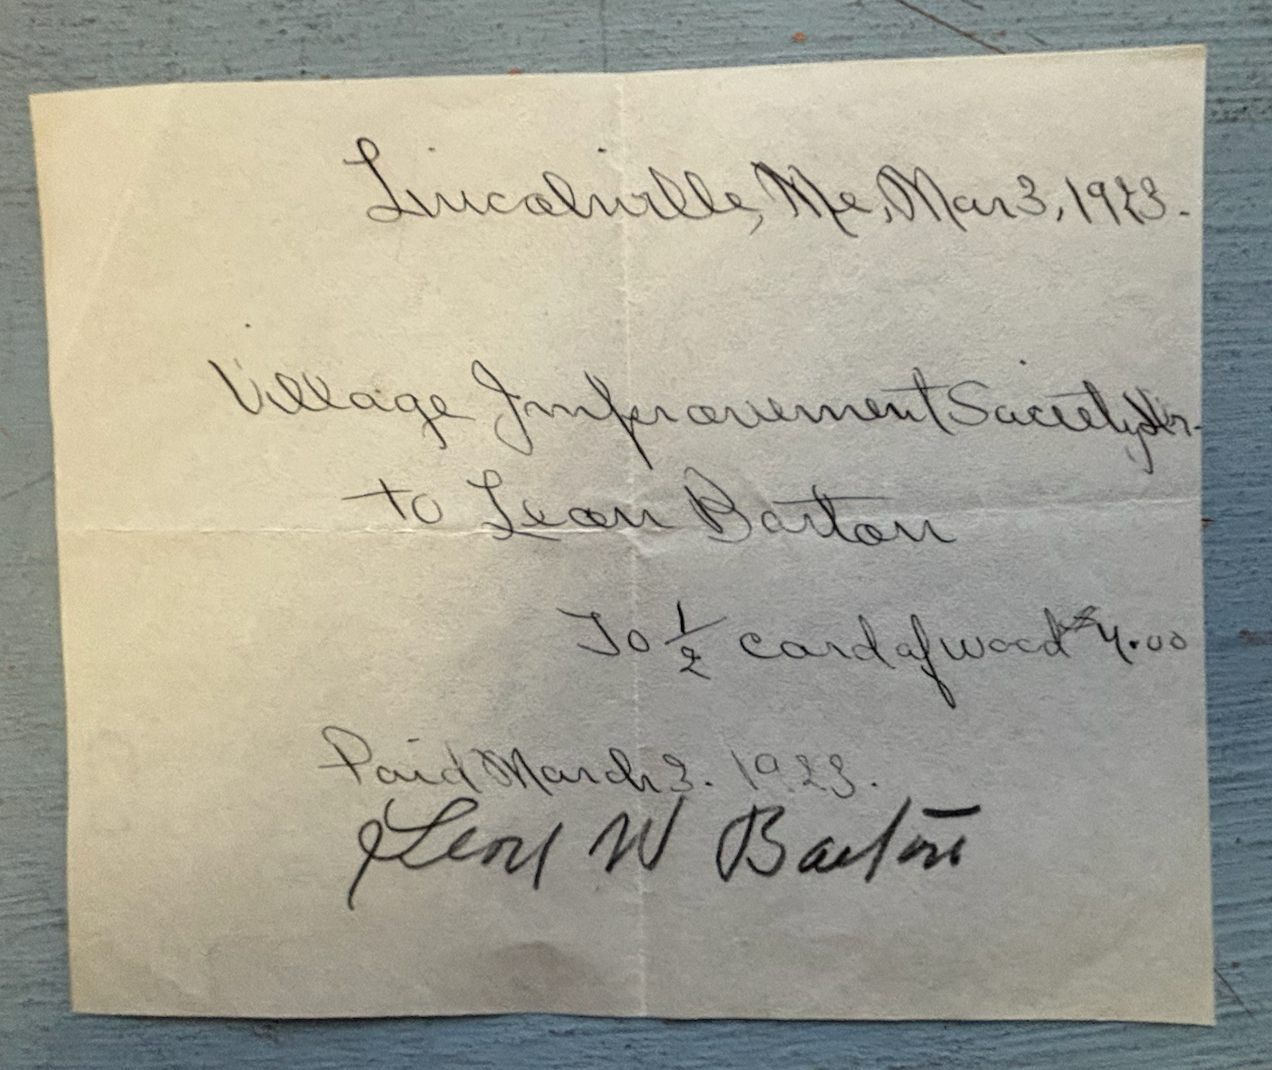 Lincolnville, Me, Mar 3, 1923.
Village Improvement Society, Dr.
to Leon Barton
To 1/2 cord of wood $4.00
Paid March 3. 1923.
Leon W Barton